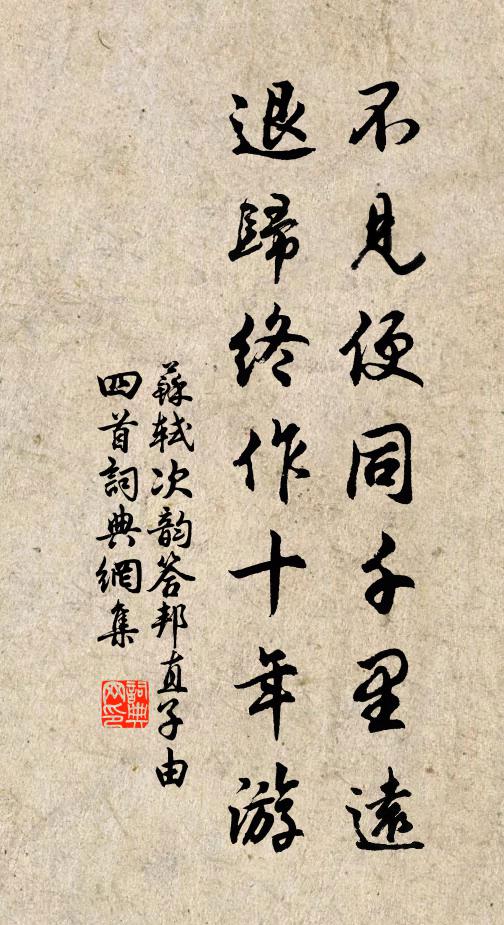 不見便同千里遠
退歸終作十年游
蘇軾次韵答邦直子由
四首詞典網集
詞典
网印